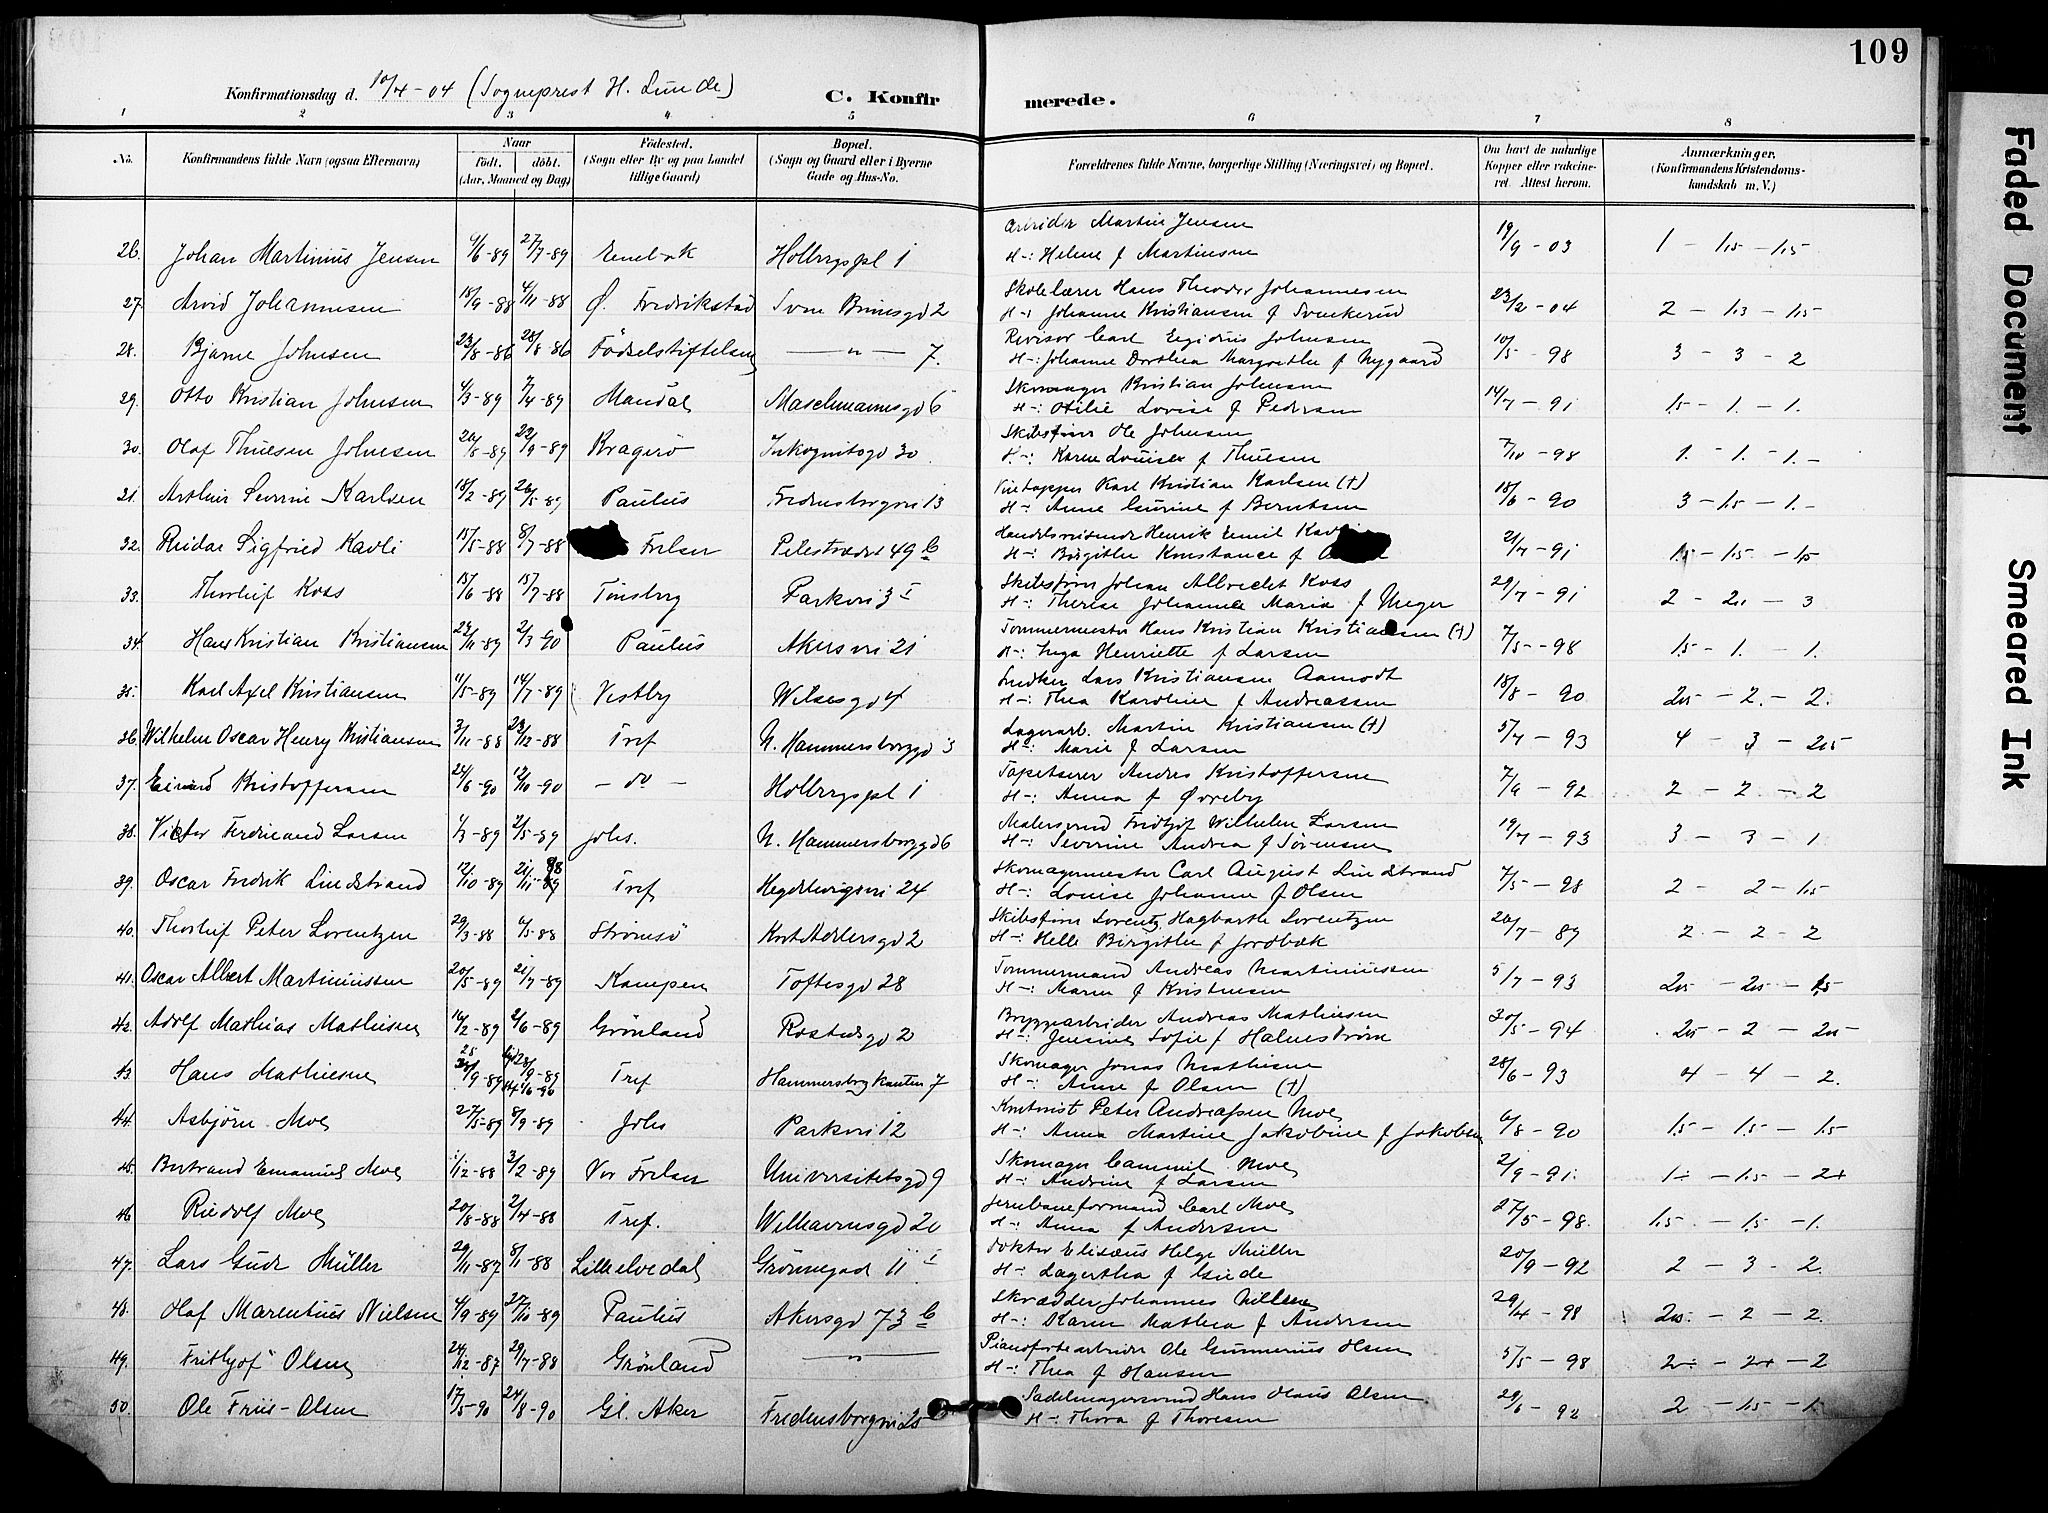 109
Konfirmationsdag d. 10/4-04 (Sogneprest H. Lunde) C. Konfirmerede.
1 2 3 4 5 6 7 8
No. Konfirmandens fulde Navn (ogsaa Efternavn) Naar født. døbt. (Aar, Maaned og Dag) Födested. (Sogn eller By og paa Landet tillige Gaard) Bopæl. (Sogn og Gaard eller i Byerne Gade og Hus-No. Forældrenes fulde Navne, borgerlige Stilling (Næringsvei) og Bopæl. Om havt de naturlige Kopper eller vaccineret. Attest herom. Anmærkninger. (Konfirmandens Kristendomskundskab m. V.)
26. Johan Martinius Jensen 9/6-89 27/7-89 Enebak Holbergspl 1 Arbeider Martin Jensen H-: Helene f Martinsen 19/9-03 1 - 1.5 - 1.5
27. Arvid Johannesen 18/9-88 4/11-88 Ø. Fredrikstad Sven Brunsgd 2 Skolelærer Hans Theodor Johannesen H-: Johanne Kristiansen f Svenkerud 23/2-04 2 - 1.3 - 1.5
28. Bjarne Johnsen 23/8-86 28/8-86 Födselstiftelsen —"— 7. Revisor Carl Egidius Johnsen H-: Johanne Dorthea Margrethe f Nygaard 10/5-98 3 - 3 - 2
29. Otto Kristian Johnsen 4/3-89 7/4-89 Mandal Maschmannsgd 5 Skomager Kristian Johnsen H-: Otilie Lovise f Pedersen 14/7-91 1.5 - 1. - 1.
30. Olaf Thuesen Johnsen 20/5-89 22/9-89 Kragerö Inkognitogd 30 Skibsförer Ole Johnsen H-: Karen Louise f Thuesen 7/10-98 1. - 1. - 1.-
31. Arthur Severin Karlsen 18/2-89 26/5-89 Paulus Fredensborgvei 13 Vintapper Karl Kristian Karlsen (†) H-: Anne Gurine f Berntsen 18/6-90 3 - 1.5 - 1.-
32. Reidar Sigfried Kavli 15/5-88 8/7-88 Frelser Pilestrædet 49 b Handelsreisende Henrik Emil H-: Birgithe Konstance f 21/7-91 1.5 - 1.5 - 1.5
33. Thorleif Koss 15/6-88 15/7-88 Tönsberg Parkvei 3 I Skibsförer Johan Albrecht Koss H-: Therese Johanne Maria f Unger 29/7-91 2 - 2.1 - 3
34. Hans Kristian Kristiansen 24/11-89 2/3-90 Paulus Akersvei 21 Tømmermester Hans Kristian Kristiansen (†) H-: Inga Henriette f Larsen 7/5-98 1.5 - 1. - 1.
35. Karl Axel Kristiansen 11/5-89 14/7-89 Vestby Wilsesgd 4 Snedker Lars Kristiansen Aamodt H-: Thea Karoline f Andreassen 18/8-90 2.5 - 2. - 2.
36. Wilhelm Oscar Henry Kristiansen 3/11-88 23/12-88 Tref N. Hammersborggd 3 Lagerarb. Martin Kristiansen (†) H-: Marie f Larsen 5/7-93 4 - 3 - 2.5
37. Eivind Kristoffersen 24/6-90 12/10-90 - do - Holbergspl 1 Tapetserer Andres Kristoffersen H-: Anna f Øvreby 7/9-92 2 - 2 - 2
38. Victor Ferdinand Larsen 1/3-89 2/5-89 Johs. N. Hammersborggd 6 Malersvend Fridtjof Wilhelm Larsen H-: Severine Andrea f Sørensen 19/7-93 3 - 3 - 1
39. Oscar Fredrik Lindstrand 12/10-89 21/11-89 Tref Hegdehougsvei 24 Skomagermester Carl August Lindstrand H-: Louise Johanne f Olsen 7/5-98 2 - 2 - 1.5
40. Thorleif Peter Lorentzen 29/3-88 6/5-88 Strömsö Kort Adelersgd 2 Skibsförer Lorentz Hagbarth Lorentzen H-: Helle Birgithe f Jordbæk 20/7-89 2. - 2 - 2
41. Oscar Albert Martiniussen 20/5-89 21/7-89 Kampen Toftesgd 28 Tømmermand Andreas Martiniussen H-: Maren f Kristensen 5/7-93 2.5 - 2.5 - 1.5
42. Adolf Mathias Mathisen 16/2-89 2/6-89 Grönland Rostedsgd 2 Bryggearbeider Andreas Mathisen H-: Jensine Sofie f Halmstrøm 30/5-94 2.5 - 2 - 2.5
43. Hans Mathiesen 28/9-89 28/9-89 14/6-96 Tref Hammersborgkanten 7 Skomager Jonas Mathisen H-: Anne f Olsen (†) 28/6-93 4 - 4 - 2.
44. Asbjörn Moe 27/5-89 8/9-89 Johs Parkvei 12 Kontorist Peter Andreassen Moe H-: Anna Martine Jakobine f Jakobsen 6/8-90 1.5 - 1.5 - 1.5
45. Bertrand Emanuel Moe 1/12-88 3/2-89 Vor Frelser Universitetsgd 9 Skomager Cammil Moe H-: Andrine f Larsen 2/9-91 1÷ - 1.5 - 2+
46 Rudolf Moe 20/8-88 2/4-88 Tref. Welhavensgd 20 Jernbaneformand Carl Moe H-: Anna f Andersen 27/5-98. 1.5. - 1.5 - 1.
47. Lars Gude Müller 29/11-87 8/1-88 Lillelvedal Grönnegade 11 I Doktor Elisæus Helge Müller H-: Lagertha f Gude 20/9-92 2 - 3 - 2.
48. Olaf Marentius Nielsen 4/9-89 27/10-89 Paulus Akersgd 73 b Skrædder Johannes Nielsen H-: Karen Mathea f Andersen 29/4-98 2.5 - 2 - 2.
49. Frithjof Olsen 24/12-87 29/7-88 Grönland —"— Pianofortearbeider Ole Gunnerius Olsen H-: Thea f Hansen 5/5-98 2÷ - 2+ - 2
50. Ole Friis-Olsen 17/5-90 24/8-90 Gl. Aker Fredensborgvei 25 Sadelmagersvend Hans Olaus Olsen H-: Thora f Thoresen 29/6-92 2 - 1.5 - 1.
Faded Document
Smeared Ink